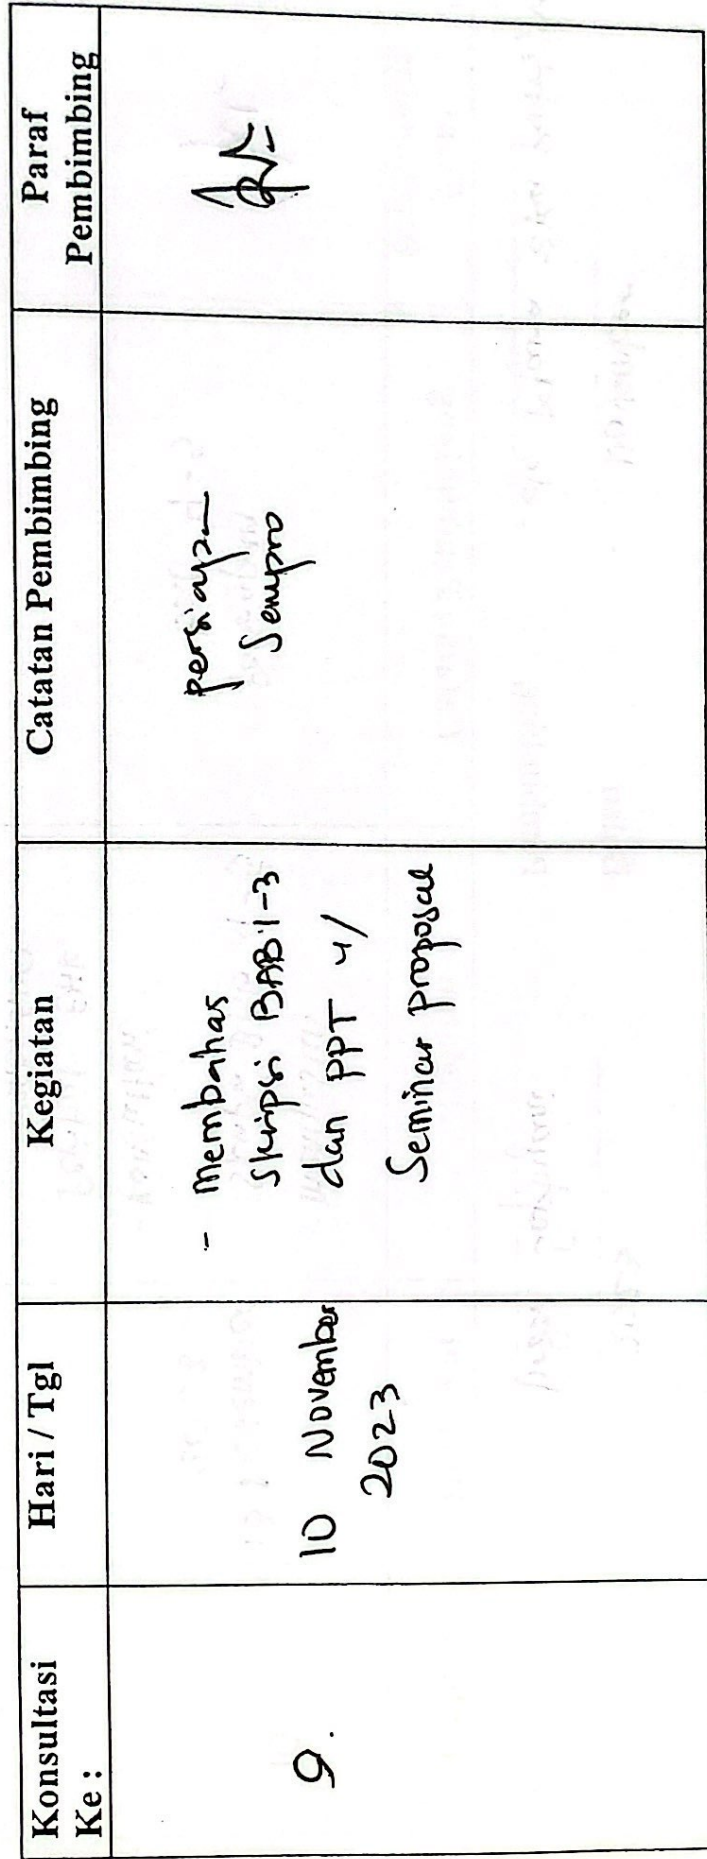 Konsultasi
Ke :
Hari / Tgl
Kegiatan
Catatan Pembimbing
Paraf
Pembimbing
9.
10 November
2023
- Membahas
Skripsi BAB 1-3
dan PPT u/
Seminar proposal
persiapan
Sempro